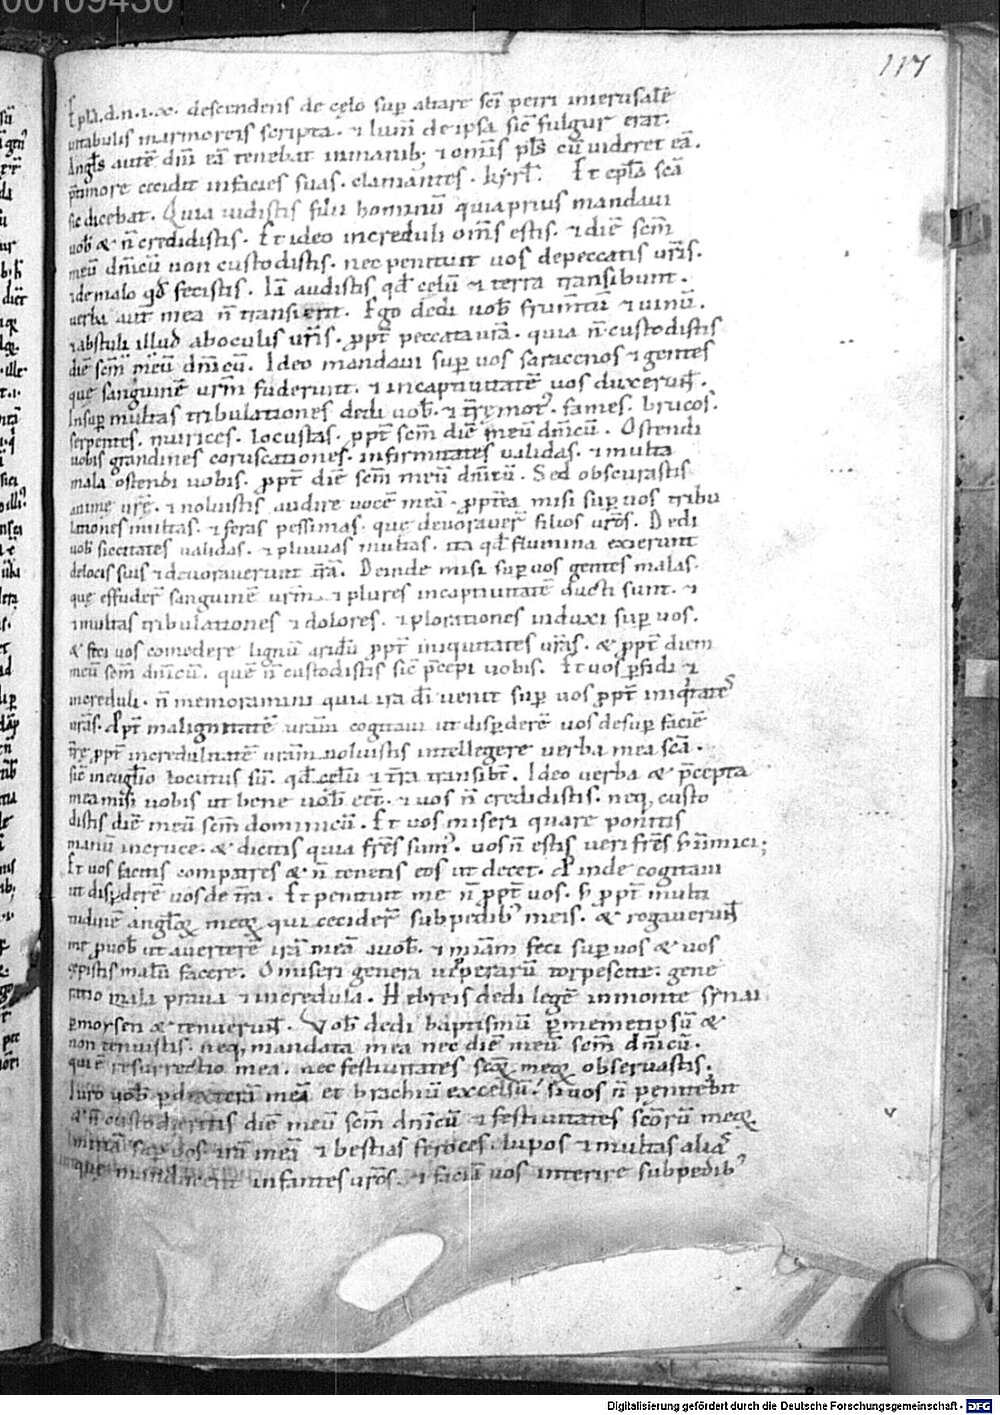 00109430
117
Epła. d. n. i. x. descendens de cęlo sup̱ altare sc̄i petri inierusalē
intabulis marmoreis scripta. ⁊ lum̄ de ipsa sic̄ fulgur erat.
Angłs autē dn̄i eā tenebat inmanib; ⁊ om̄is płs cū uideret eā.
p̄timore cecidit infacies suas. clamantes. kyrł. Et epła scā
sic dicebat. Quia uidistis filii hominū quia prius mandaui
uob̄ & n̄ credidistis. Et ideo increduli om̄s estis. ⁊ diē scm̄
meū dn̄icū non custodistis. nec penituit uos depeccatis ur̄is.
⁊ de malo qđ fecistis. Iā audistis qđ cęlū ⁊ terra transibunt.
uerba aut̄ mea n̄ transient. Ego dedi uob̄ frum̄tū ⁊ uinū.
⁊ abstuli illud aboculis ur̄is. ppt̄ peccata ur̄a. quia n̄ custodistis
diē scm̄ meū dn̄icū. Ideo mandaui sup̱ uos saracenos ⁊ gentes
quę sanguinē ur̄m fuderunt. ⁊ incaptiuitatē uos duxerun̄t.
Insup̱ multas tribulationes dedi uob̄. ⁊ tr̄ęmot᾿. fames. brucos.
serpentes. murices. locustas. ppt̄ scm̄ diē meū dn̄icū. Ostendi
uobis grandines coruscationes. infirmitates ualidas. ⁊ multa
mala ostendi uobis. ppt̄ diē scm̄ meū dn̄icū. Sed obscurastis
animę ur̄ę. ⁊ noluistis audire uocē meā. ppt̄ea misi sup̱ uos tribu
lationes multas. ⁊ feras pessimas. quę deuorauer̄ filios ur̄os. Dedi
uob̄ siccitates ualidas. ⁊ pluuias multas. ita qđ flumina exierunt
delocis suis ⁊ deuorauerunt tr̄ā. Deinde misi sup̱ uos gentes malas.
quę effuder̄ sanguinē ur̄m. ⁊ plures incaptiuitatē ducti sunt. ⁊
⁊ multas tribulationes ⁊ dolores. ⁊ plorationes induxi sup̱ uos.
& feci uos comedere lignū aridū ppt̄ iniquitates ur̄as. & ppt̄ diem
meū scm̄ dn̄icū. quē n̄ custodistis sic̄ p̄cepi uobis. Et uos p̱fidi ⁊
increduli. n̄ memoramini quia ira dī uenit sup̱ uos ppt̄ iniq̇tates
ur̄as. Ppt̄ malignitatē ur̄am cogitaui ut disp̱derē uos desup̱ faciē
tr̄ę. ppt̄ incredulitatē ur̄am noluistis intellegere uerba mea scā.
sic̄ ineuglio locutus sū. qđ cęlū ⁊ tr̄a transibt̄. Ideo uerba & p̄cepta
mea misi uobis ut bene uob̄ eēt. ⁊ uos n̄ credidistis. neq; custo
distis diē meū scm̄ dominicū. Et uos miseri quare ponitis
manū incruce. & dicitis quia fr̄es sum᾿. uos n̄ estis ueri fr̄es ƀ inimici;
Et uos facitis compatres & n̄ tenetis eos ut decet. Pinde cogitaui
ut disp̱derē uos de tr̄a. Et penituit me n̄ ppt̄ uos. ƀ ppt̄ multi
tudinē angłoꝝ meoꝝ qui cecider̄ sub pedib᾿ meis. & rogauerun̄t
me p uob̄ ut auerterē irā meā auob̄. ⁊ mīam feci sup̱ uos & uos
cępistis malū facere. O miseri genera uiperarū torpescite: gene
ratio mala praua ⁊ incredula. Hebreis dedi legē inmonte synai
p̱moysen & tenuerun̄t. Vob̄ dedi baptismū p̱ memetipsū &
non tenuistis. neq; mandata mea nec diē meū scm̄ dn̄icū.
qui ē resurrectio mea. nec festiuitates scoꝝ meoꝝ obseruastis.
Iuro uob̄ p̱ dexterā meā et brachiū excelsū. si uos n̄ penitebit
& n̄ custodieritis diē meū scm̄ dn̄icū ⁊ festiuitates scorū meoꝝ
mittā sup̱ uos irā meā ⁊ bestias feroces. lupos ⁊ multas alias
quę manducent infantes ur̄os. ⁊ faciā uos interire sub pedib᾿
Digitalisierung gefördert durch die Deutsche Forschungsgemeinschaft - DFG